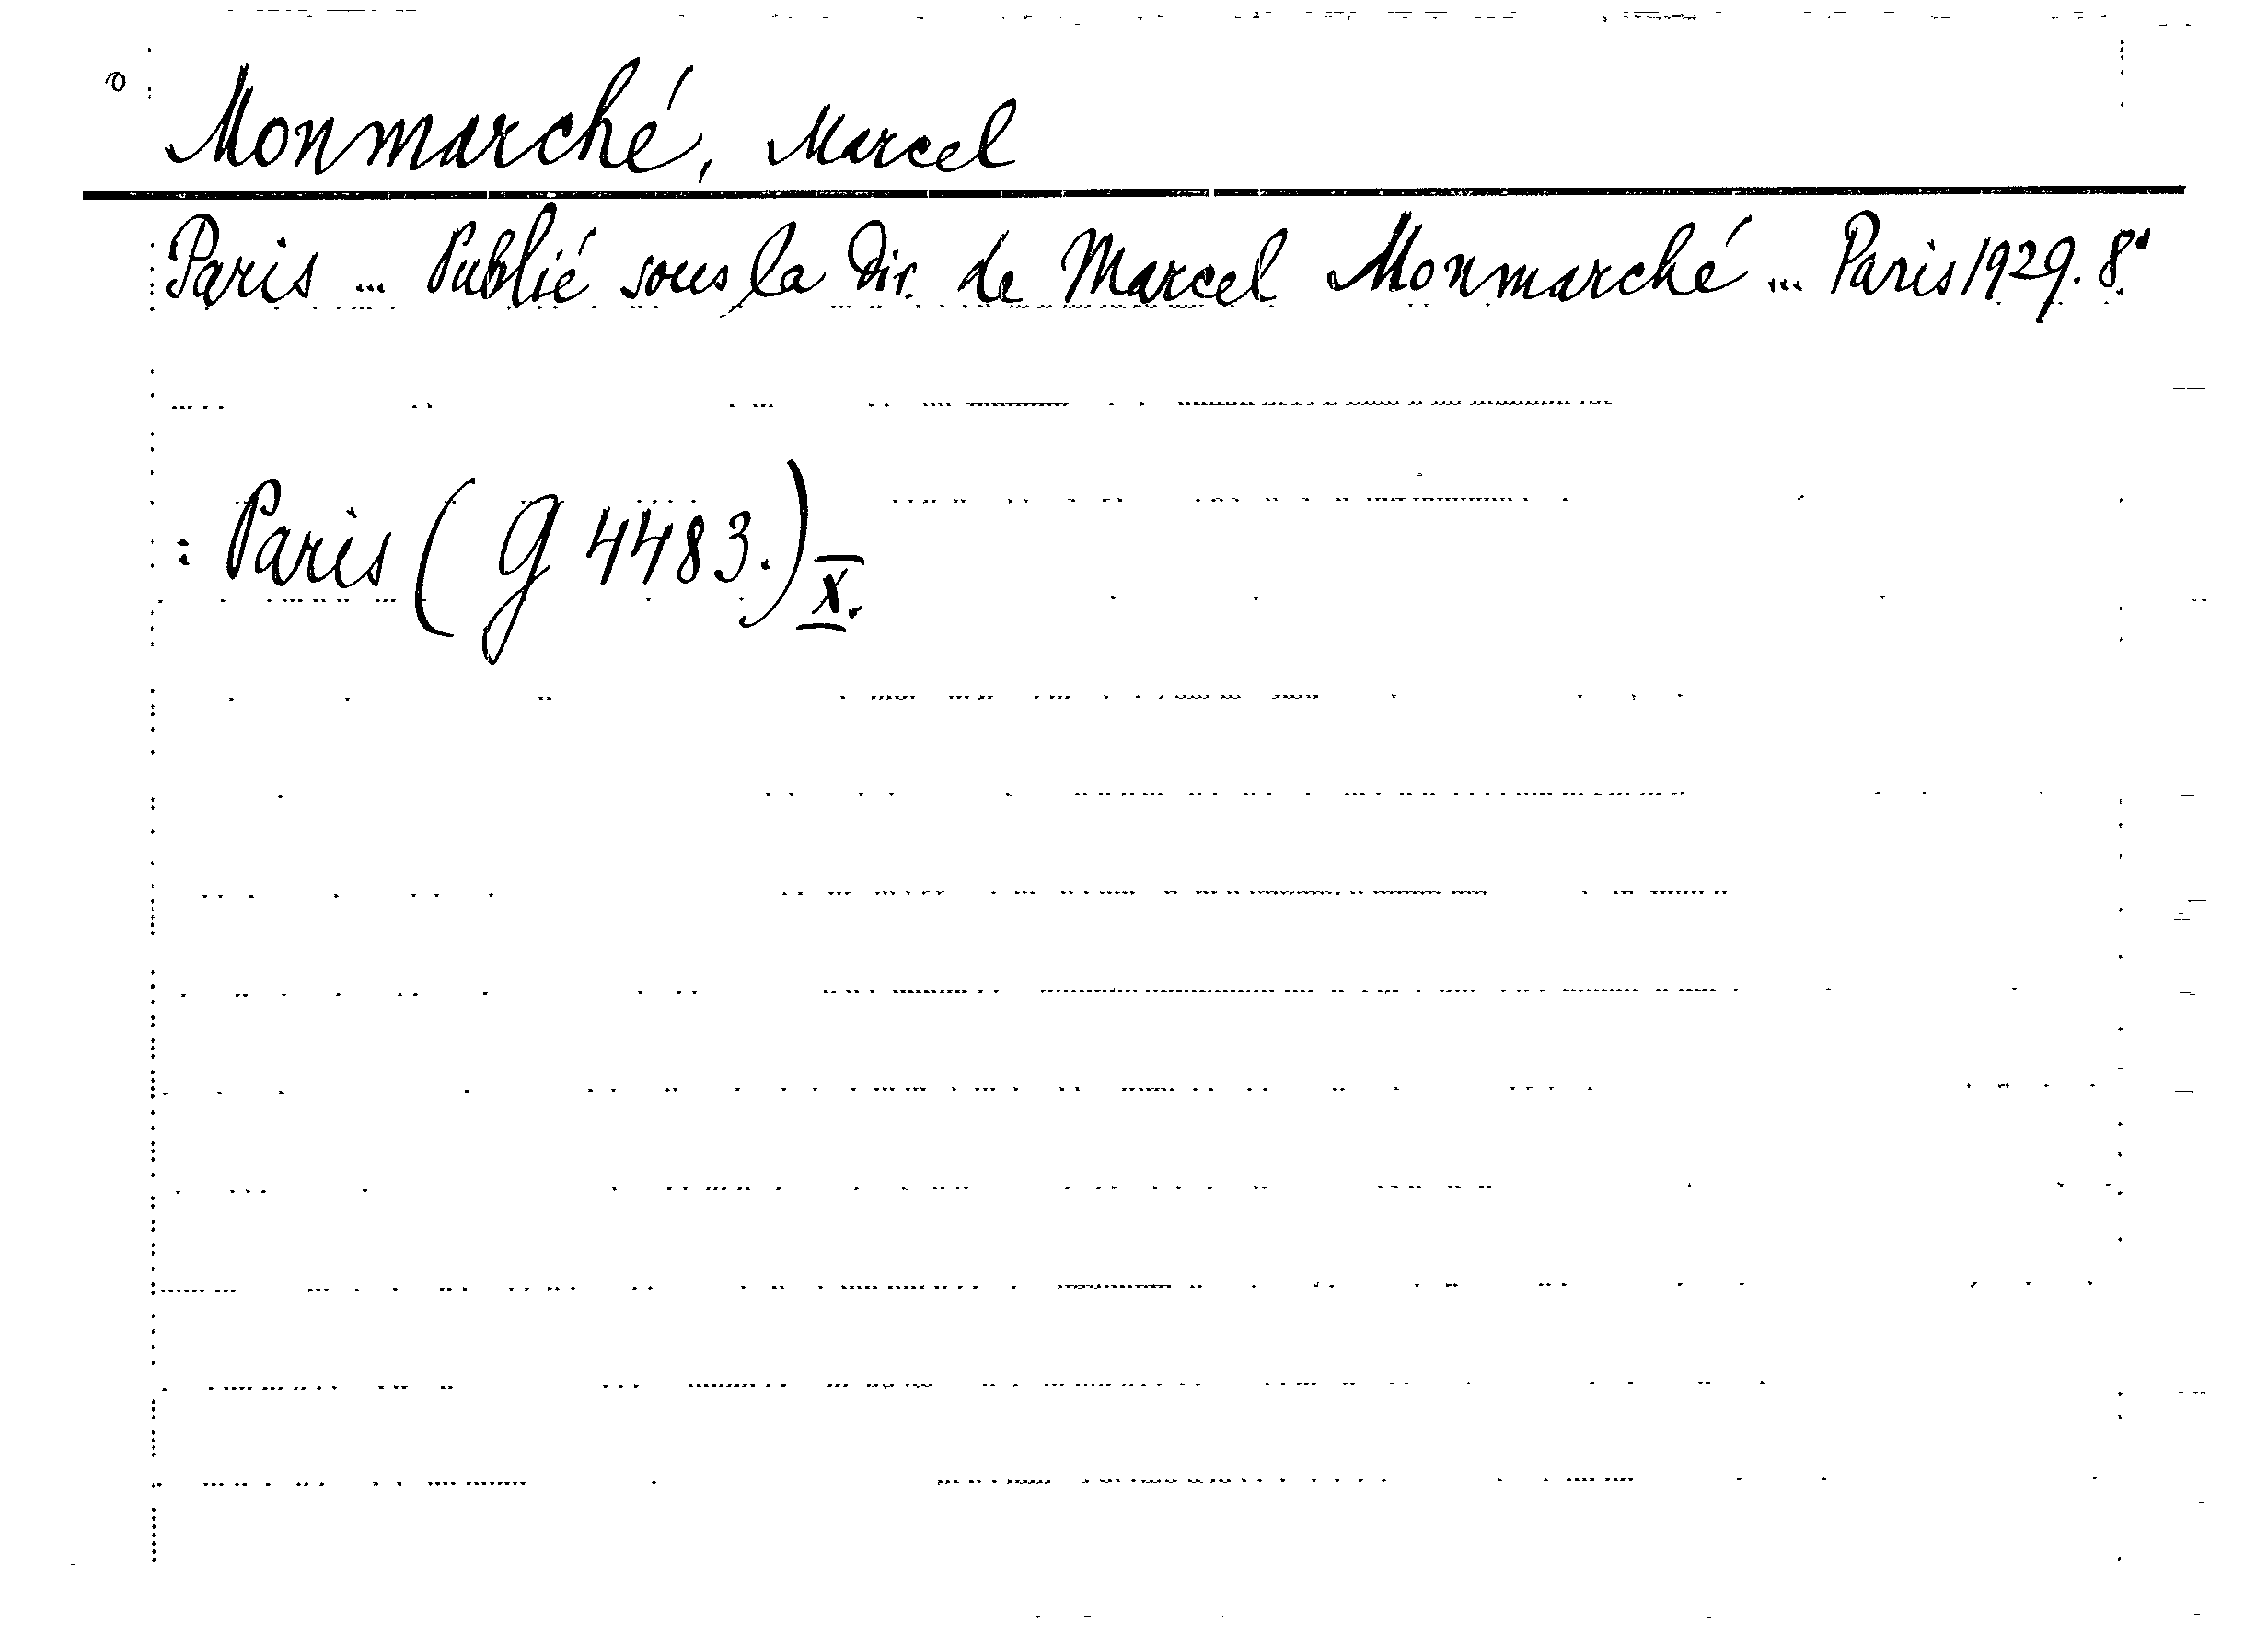 Monmarché, Marcel
Paris ... Publié sous la Dir. de Marcel Monmarché ... Paris 1929. 8°
: Paris (G 4483.) X.